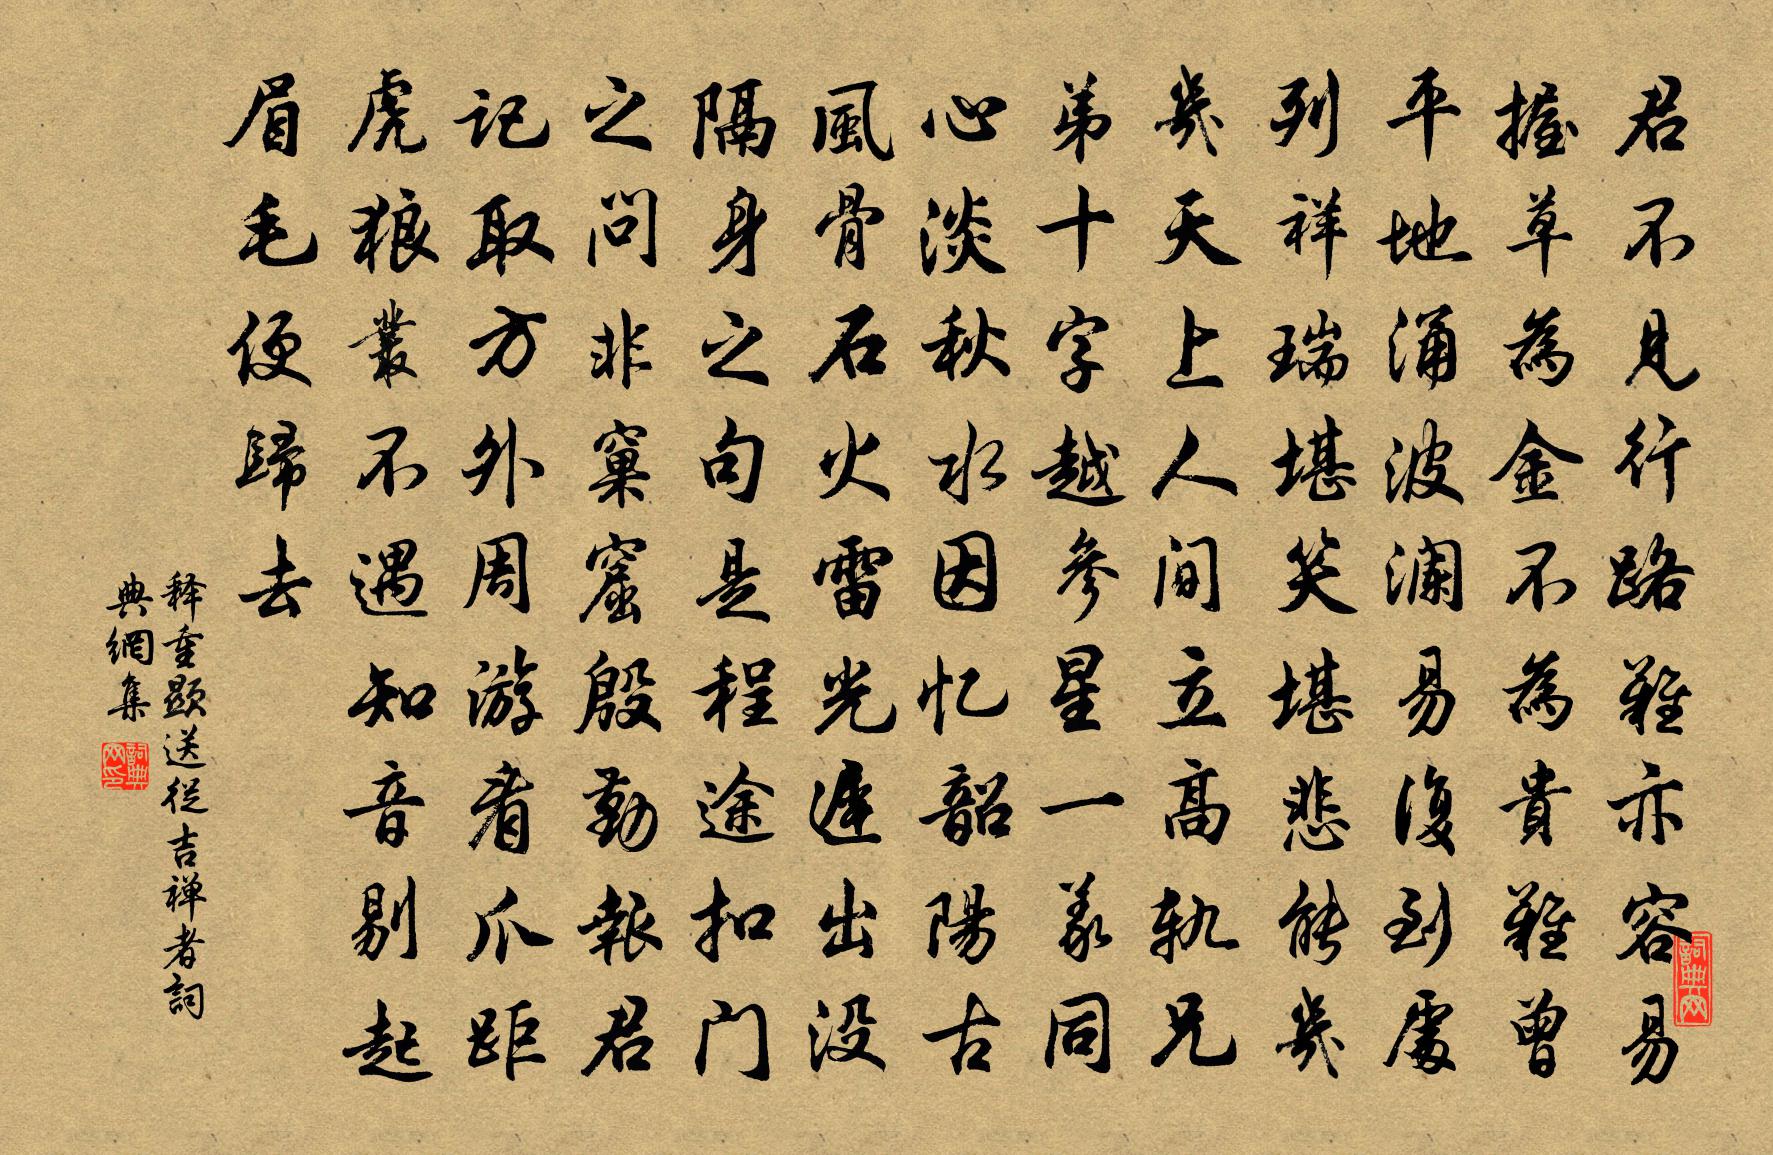 君不見行路難亦容易
握草為金不為貴難曾
平地涌波瀾易復到處
列祥瑞堪笑堪悲能幾
幾天上人間立高軌兄
弟十字越參星一義同
心淡秋水因忆韶陽古
風骨石火雷光遲出没
隔身之句是程途扣门
之問非窠窟殷勤報君
记取方外周游看爪距
虎狼叢不遇知音剔起
眉毛便歸去
释重顯送從吉禅者詞
典網集
詞典网
詞典网印